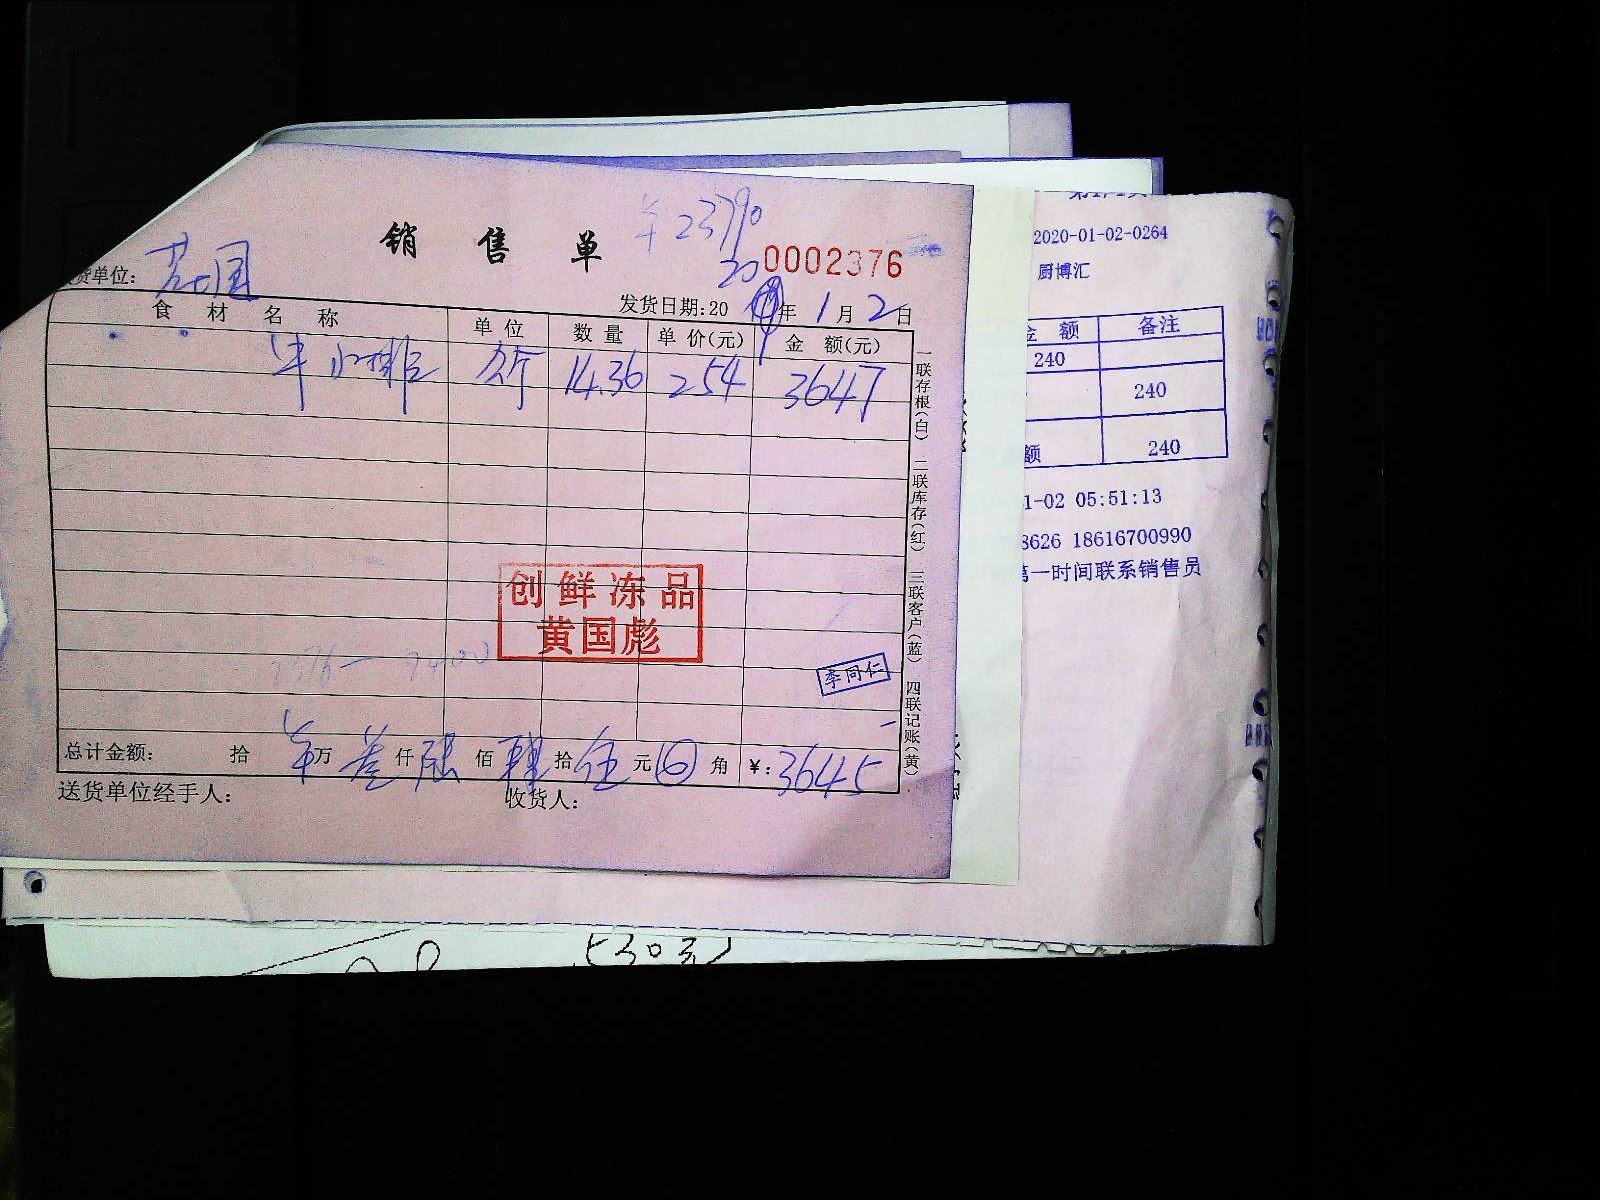 ¥23790
销售单
0002376
货单位：
20
发货日期：20 年 1 月 2 日
食材名称 单位 数量 单价(元) 金额(元)
牛小排 斤 14.36 254 3647
一联存根(白) 二联库存(红) 三联客户(蓝) 四联记账(黄)
创鲜冻品
黄国彪
李同仁
总计金额： 拾 万 叁 仟 陆 佰 肆 拾 伍 元 角 ¥：3645
送货单位经手人： 收货人：
2020-01-02-0264
厨博汇
金额 备注
240
240
额 240
1-02 05:51:13
8626 18616700990
第一时间联系销售员